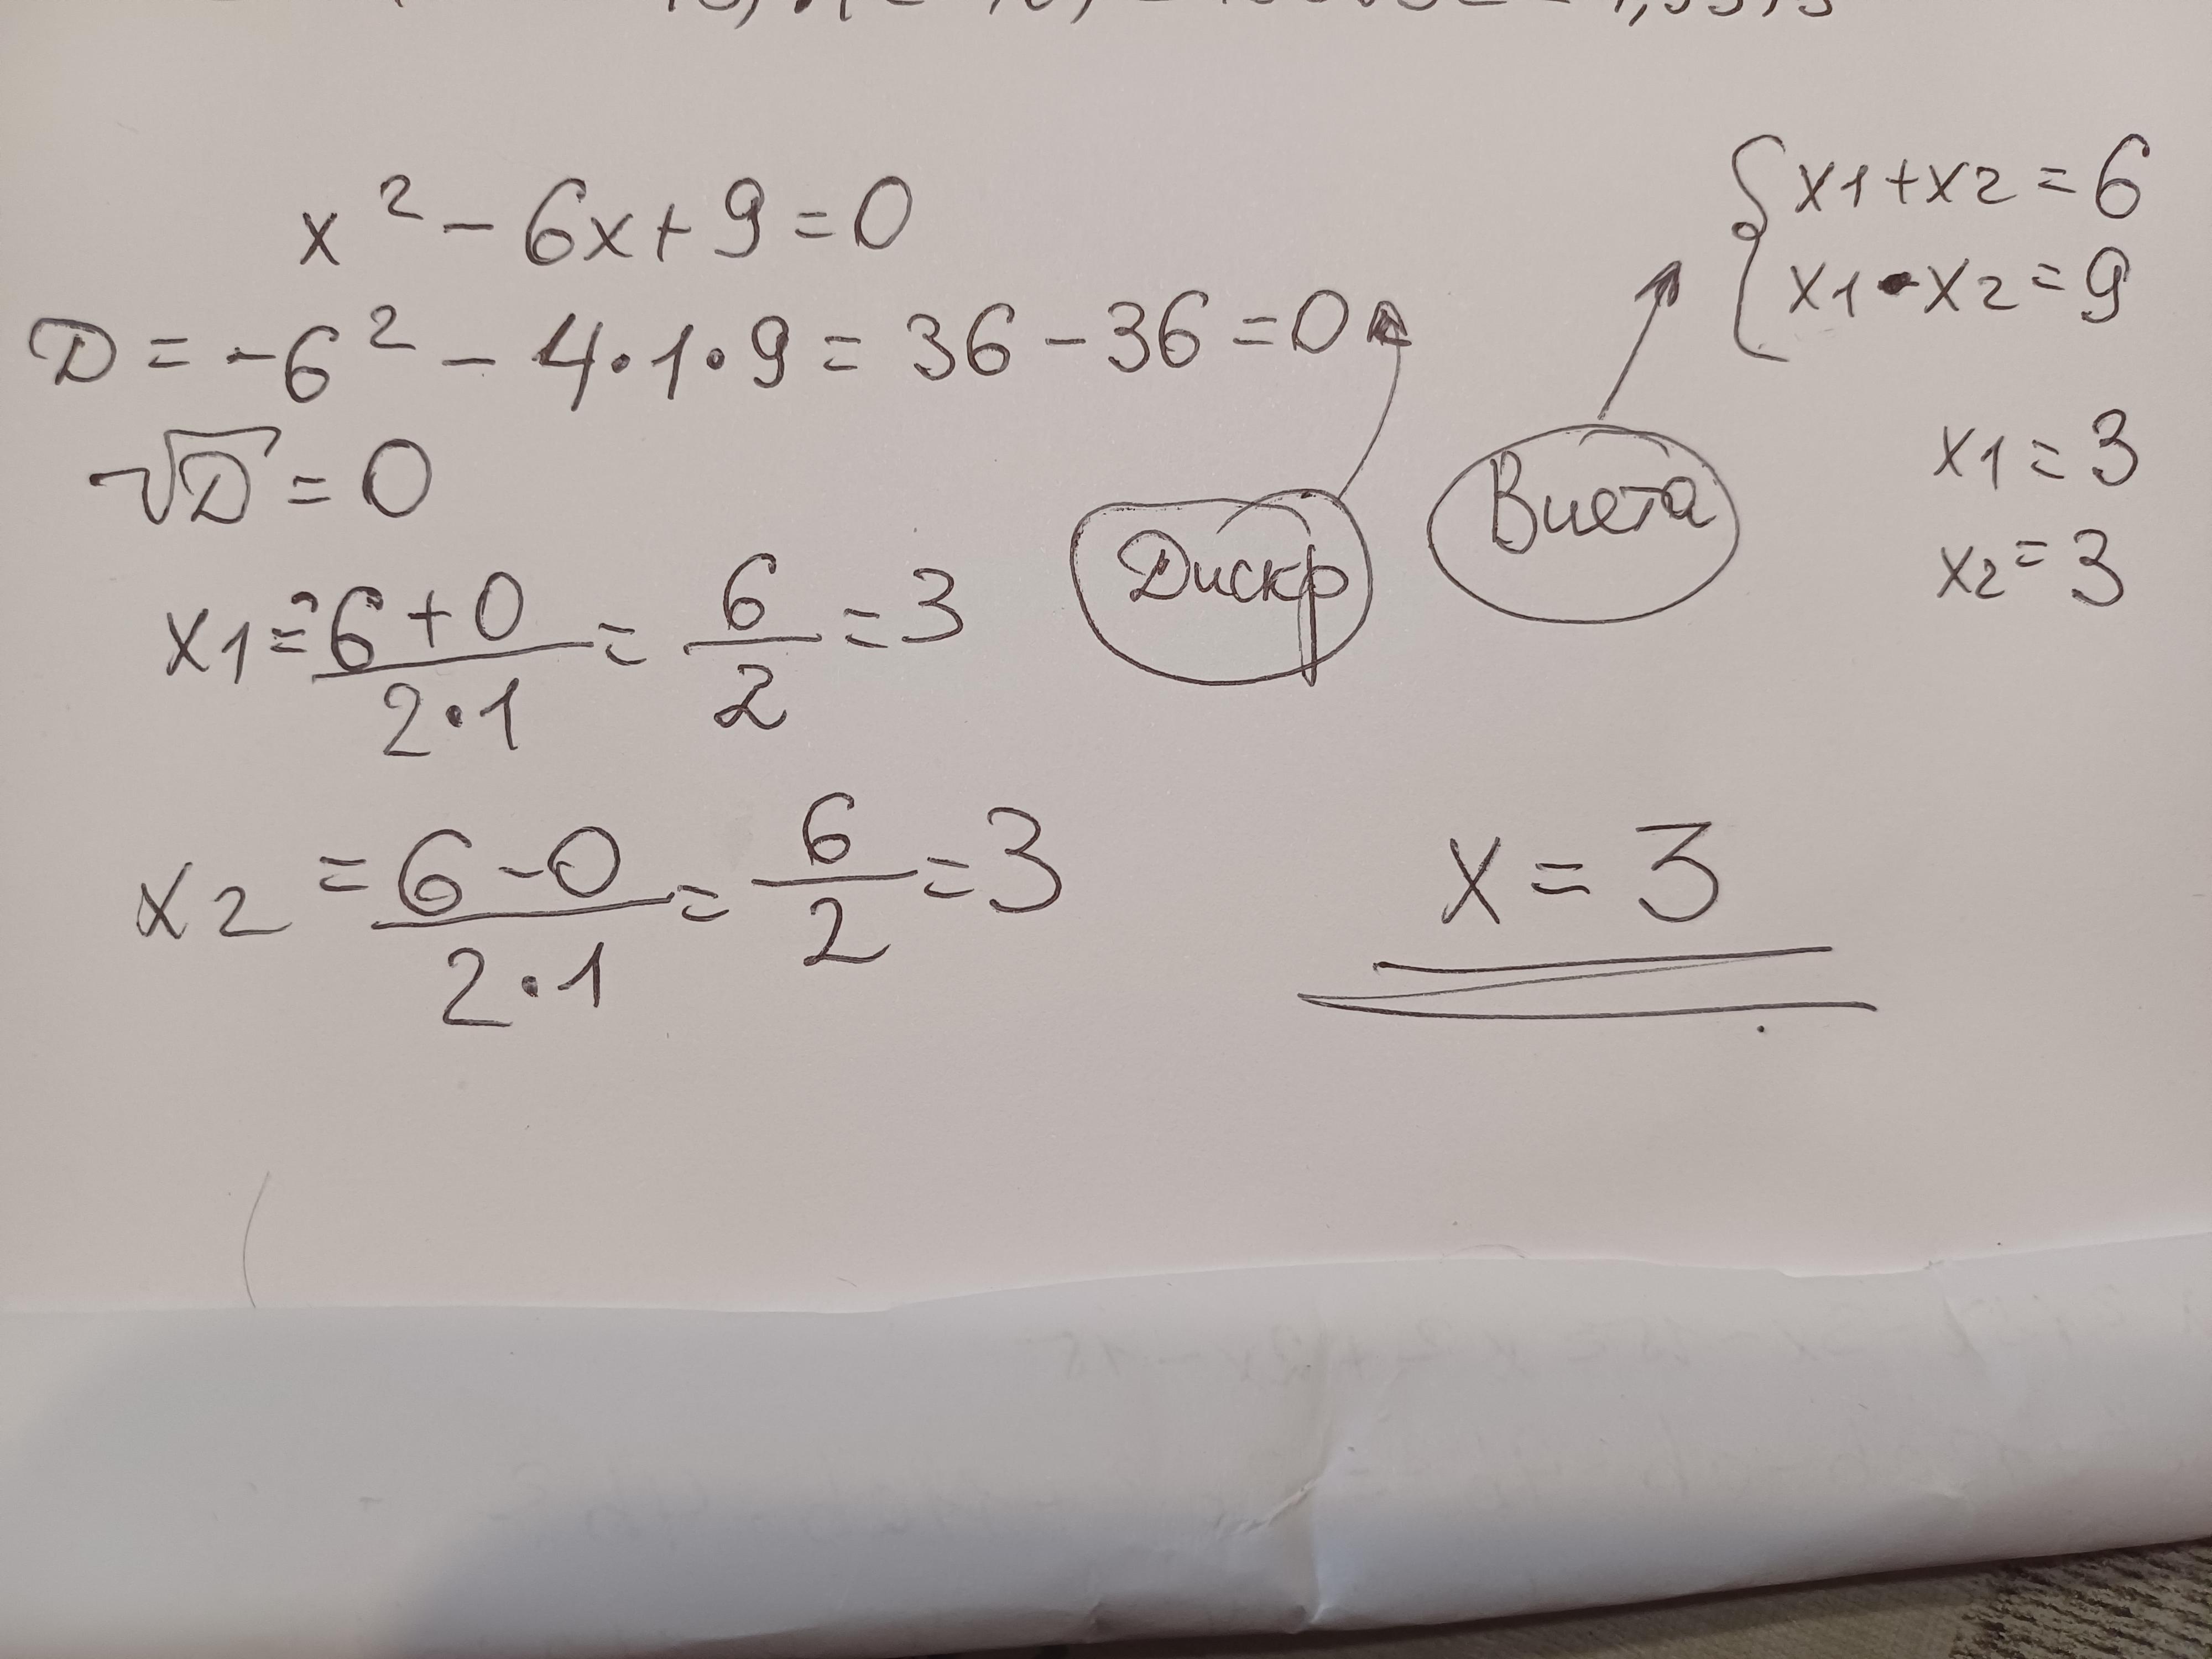 x² - 6x + 9 = 0
D = -6² - 4·1·9 = 36 - 36 = 0
√D = 0
x1 = 6 + 0 / 2·1 = 6/2 = 3
x2 = 6 - 0 / 2·1 = 6/2 = 3
Дискр
Виета
{ x1 + x2 = 6
x1 · x2 = 9
x1 = 3
x2 = 3
x = 3